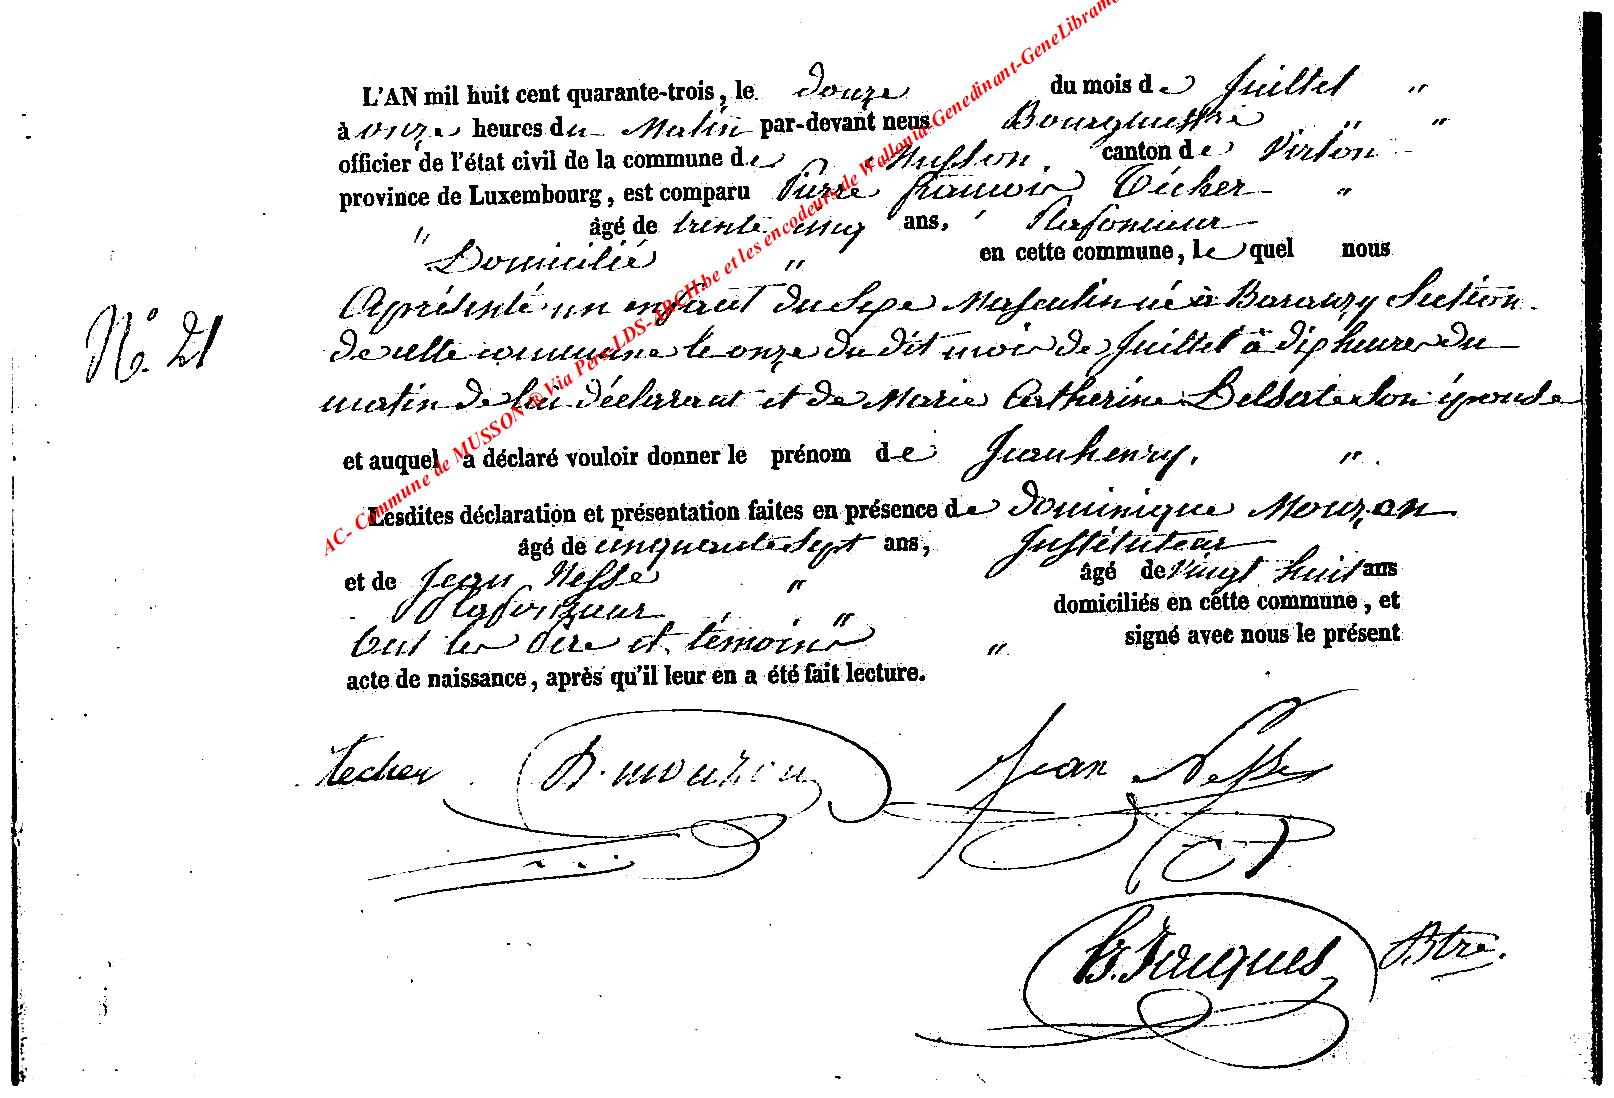 L'AN mil huit cent quarante-trois, le douze du mois de Juillet "
à onze heures du Matin par-devant nous Bourgmestre " "
officier de l'état civil de la commune de Musson. canton de Virton
province de Luxembourg, est comparu Pierre francois Técher "
" âgé de trente cinq ans, Plafonneur
Domicilié " en cette commune, le quel nous
N.° 21
Aprésenté un enfant du Sexe Masculin né à Baranzy Section
de cette commune le onze du dit mois de Juillet à dix heures du
matin de lui déclarant et de Marie Catherine Delsate son épouse
et auquel a déclaré vouloir donner le prénom de Jean henry. " .
Lesdites déclaration et présentation faites en présence de dominique Mouzon
âgé de cinquante Sept ans, Instituteur
et de Jean Nesse " âgé de vingt huit ans
Plafonneur " domiciliés en cette commune, et
Ont les père et témoins " " signé avec nous le présent
acte de naissance, après qu'il leur en a été fait lecture.
techer D. mouzon Jean Nesse
Jacques Bstre.
AC- Commune de MUSSON @ Via Pers LDS-ARCH.be et les encodeurs de Wallonia-Genedinant-GeneLibrame